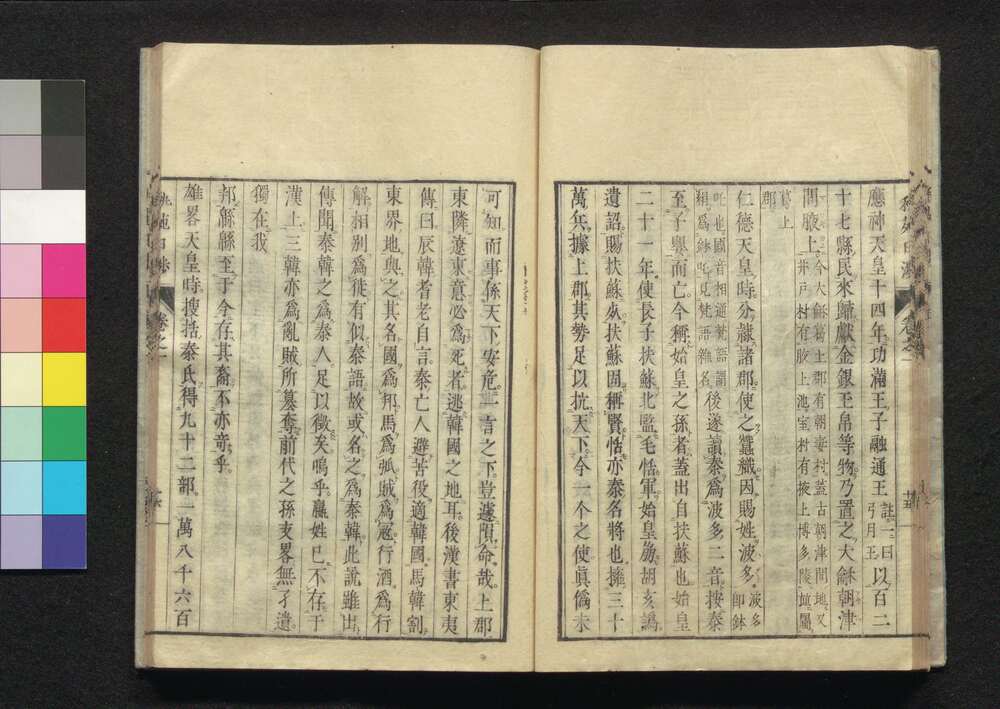 應神天皇十四年功滿王子融通王註一曰弓月王以百二
十七縣民來歸獻金銀玉帛等物乃置之大穌朝津
間腋上今大穌葛上郡有朝妻村蓋古朝津間地又井戸村有腋上池室村有掖上博多陵並屬葛上
郡
仁德天皇時分隸諸郡使之蠶織因賜姓波多波多卽鉢
吒也國音相通梵語謂絹爲鉢吒見梵語雜名後遂讀秦爲波多二音按秦
至子嬰而亡今稱始皇之孫者蓋出自扶蘇也始皇
二十一年使長子扶蘇北監蒙恬軍始皇崩胡亥譌
遺詔賜扶蘇死扶蘇固稱賢恬亦秦名將也擁三十
萬兵據上郡其勢足以抗天下今一个之使眞僞未
可知而事係天下安危一言之下豈遽隕命哉上郡
東隣遼東意必爲死者逃韓國之地耳後漢書東夷
傳曰辰韓耆老自言秦亡人避苦役適韓國馬韓割
東界地與之其名國爲邦馬爲弧賊爲寇行酒爲行
觴相別爲徒有似秦語故或名之爲秦韓此説雖出
傳聞秦韓之爲秦人足以徵矣嗚乎嬴姓已不存于
漢土三韓亦爲亂賊所簒奪前代之孫支畧無孑遺
獨在我
邦緜緜至于今存其裔不亦奇乎
雄畧天皇時搜括秦氏得九十二部一萬八千六百
卷之一